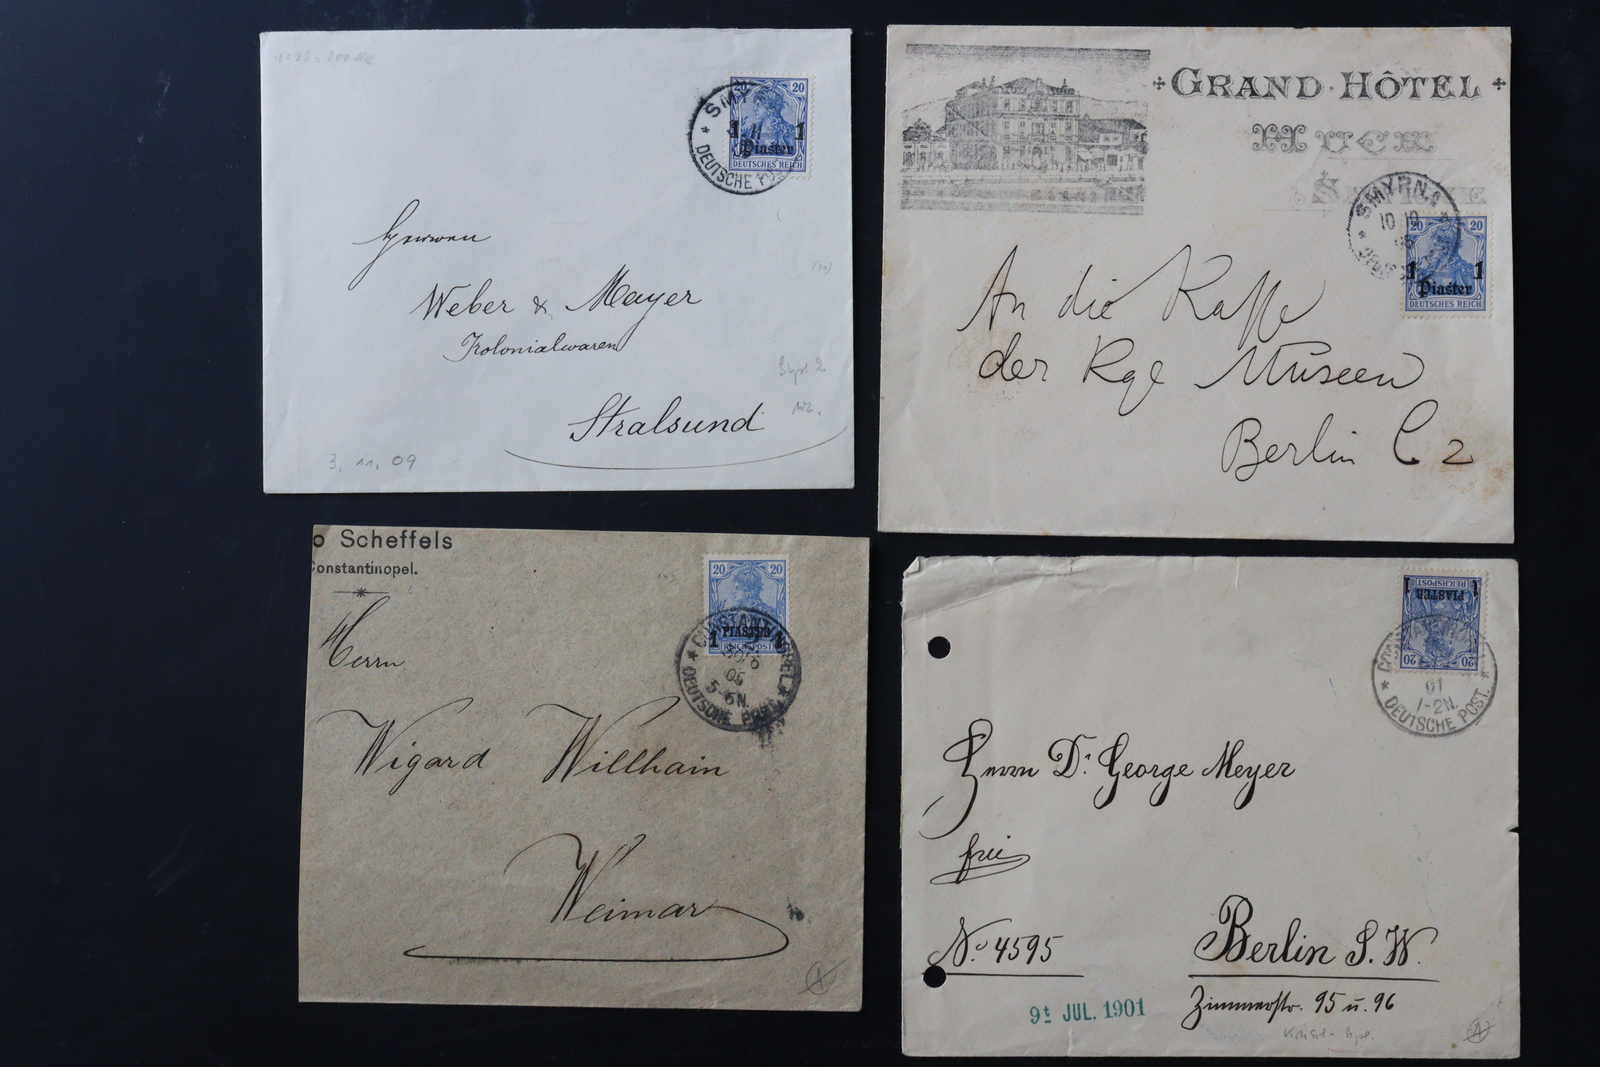 20
SMY
1 11 1
Piaster
DEUTSCHES REICH
DEUTSCHE
Herren
Weber & Mayer
Kolonialwaren
Stralsund
3. 11. 09
GRAND · HÔTEL
HUCK
SMYRNA
10 10
20 20
1 1
Piaster
DEUTSCHES REICH
An die Kasse
der Kgl Museen
Berlin C 2
o Scheffels
Constantinopel.
20 20
1 PIASTER
REICHSPOST
CONSTANTINOPEL
05
5-6N.
DEUTSCHE POST.
Herrn
Wigard Willhain
Weimar
1 PIASTER 1
REICHSPOST
20 20
01
1-2N.
DEUTSCHE POST.
Herrn Dr. George Meyer
frei
No. 4595
Berlin S. W.
9t JUL. 1901
Zimmerstr. 95 u. 96